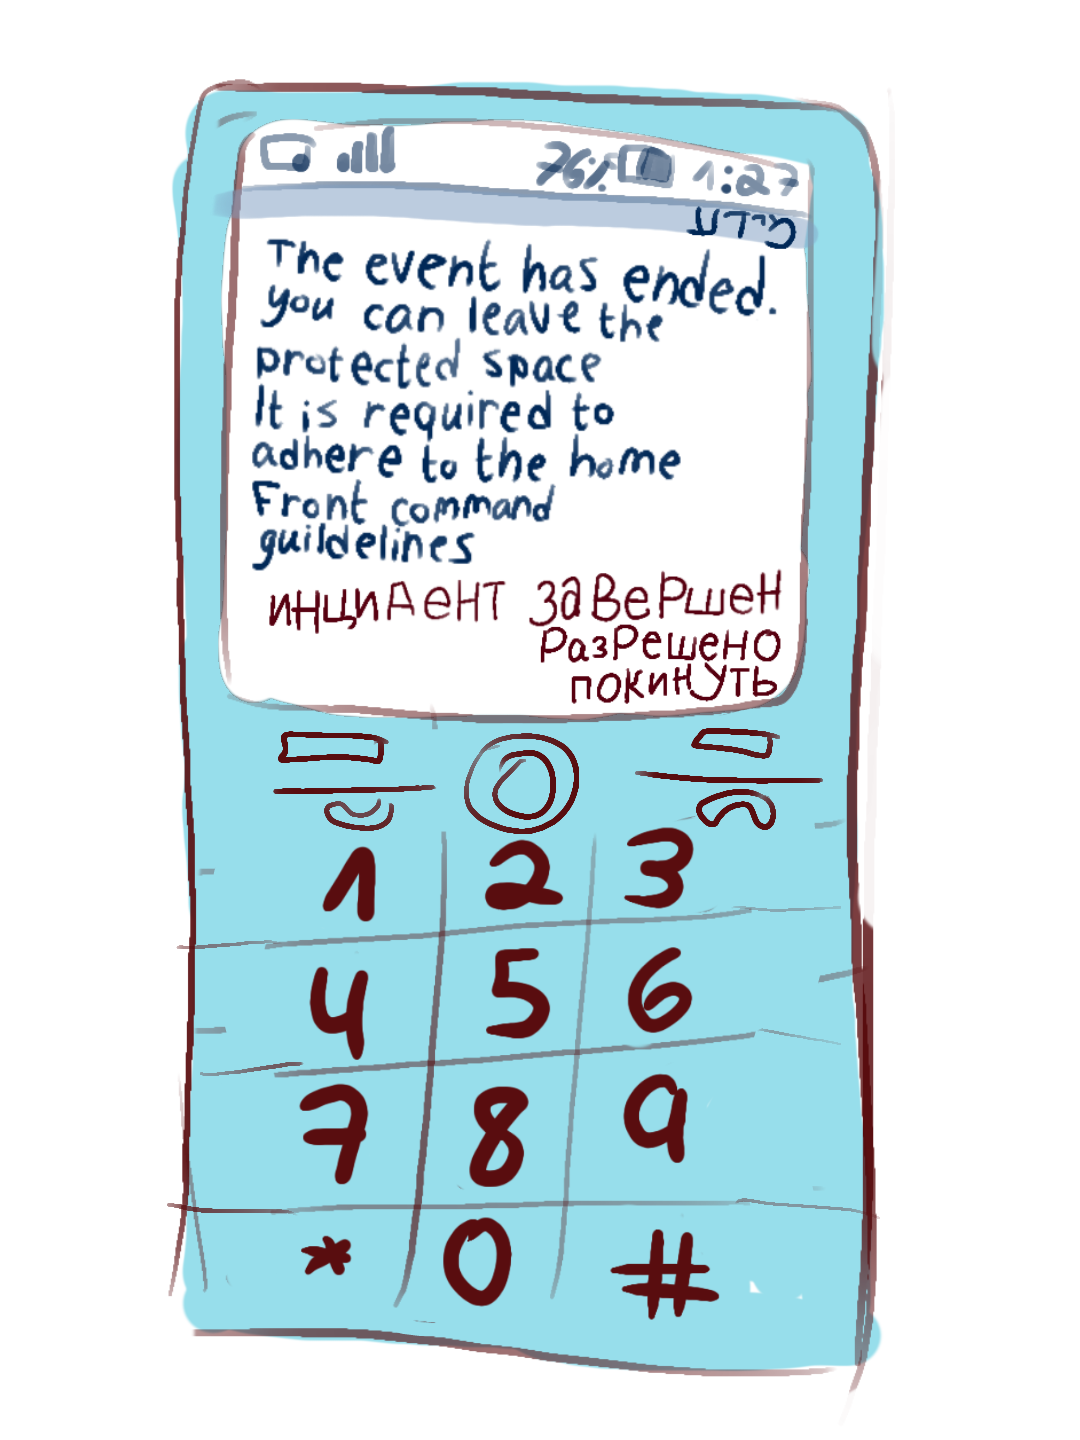 76% 1:27
The event has ended.
you can leave the
protected space
It is required to
adhere to the home
Front command
guildelines
ИНЦИДеНТ ЗаВеРШеН
РазРешеНО
ПОКИНУТЬ
1 2 3
4 5 6
7 8 9
* 0 #